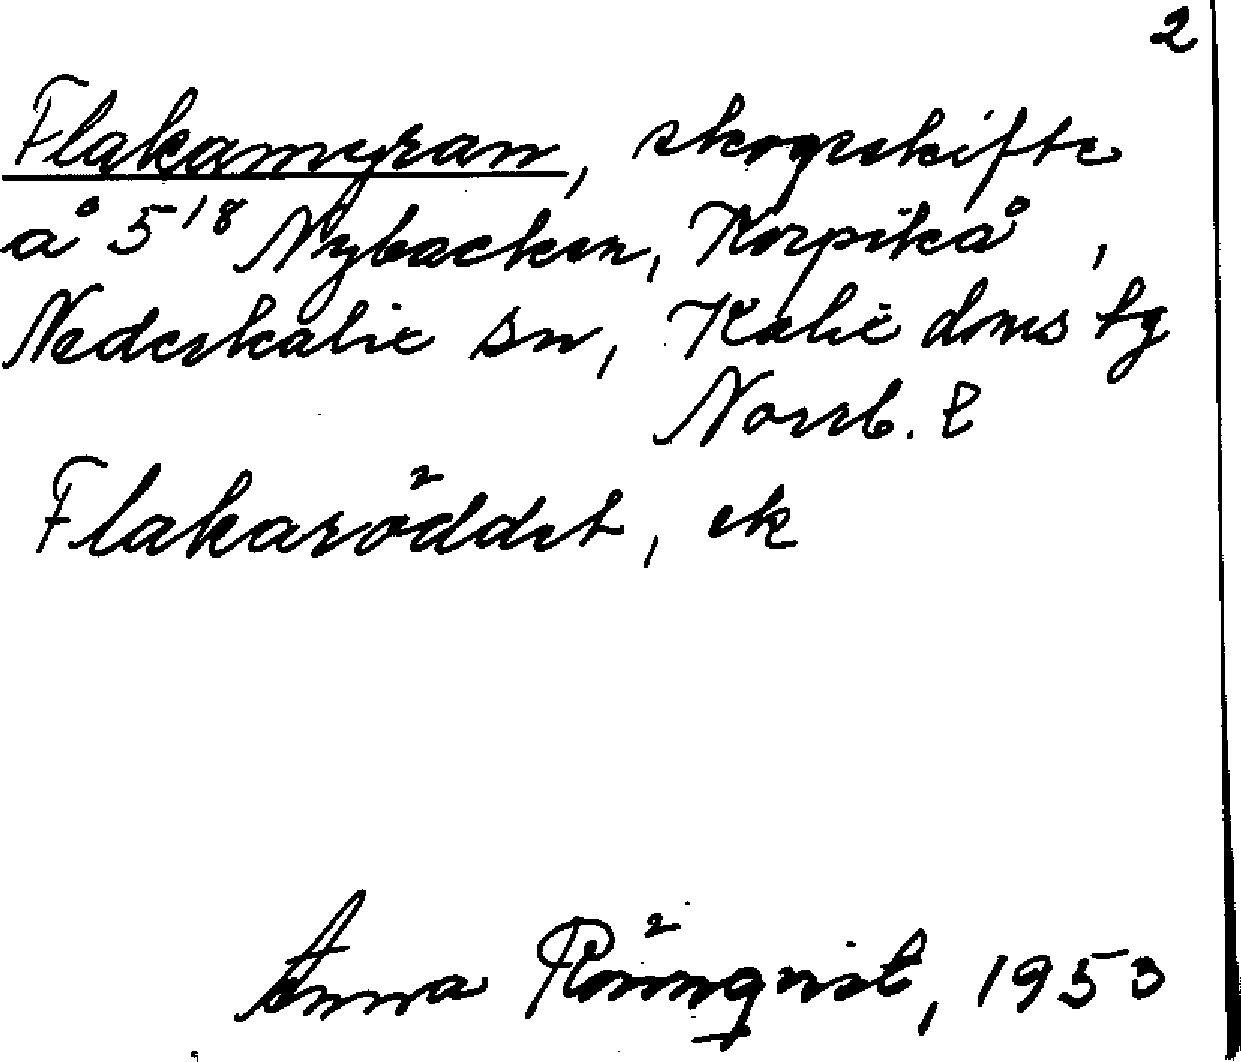 2
Flakamyran, skogsskifte
å 5¹⁸ Nybacken, Korpikå,
Nederkalix sn, Kalix doms tg
Norrb. l
Flakaröddet, ek
Anna Rönnqvist, 1953